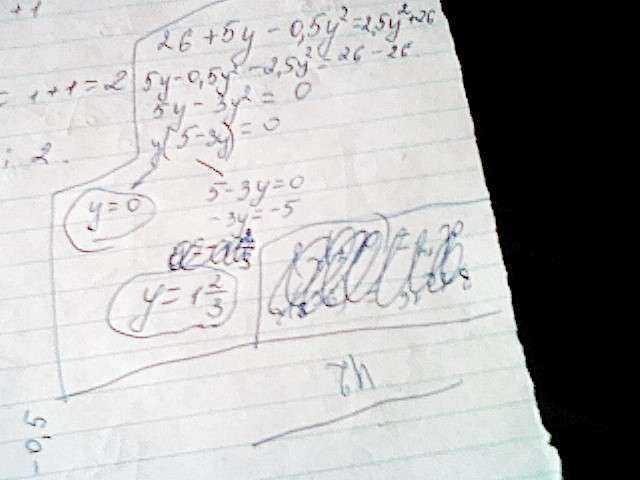 +1
26 + 5y - 0,5y² = 2,5y² + 26
= 1 + 1 = 2
5y - 0,5y² - 2,5y² = 26 - 26
5y - 3y² = 0
y(5 - 3y) = 0
; 2.
5 - 3y = 0
y = 0
-3y = -5
y = 1 2/3
-0,5